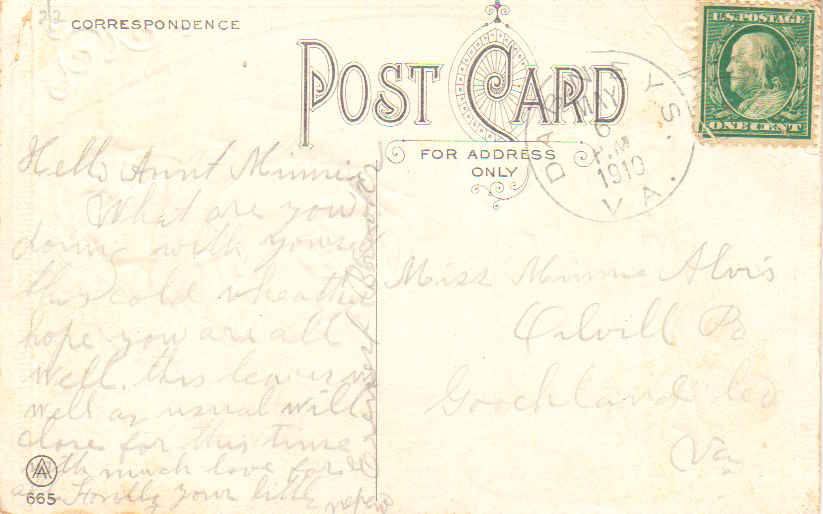 22
CORRESPONDENCE
U.S. POSTAGE
ONE CENT
POST CARD
FOR ADDRESS
ONLY
DABNEYS
MAY
6
P.M
1910
VA.
Hello Aunt Minnie
What are you
doing with yourself
this cold wheather
hope you are all
well. this leaves us
well as usual will
close for this time
with much love for
Fondly your little
Miss Minnie Alvis
Po
Goochland Co
Va
AA
665